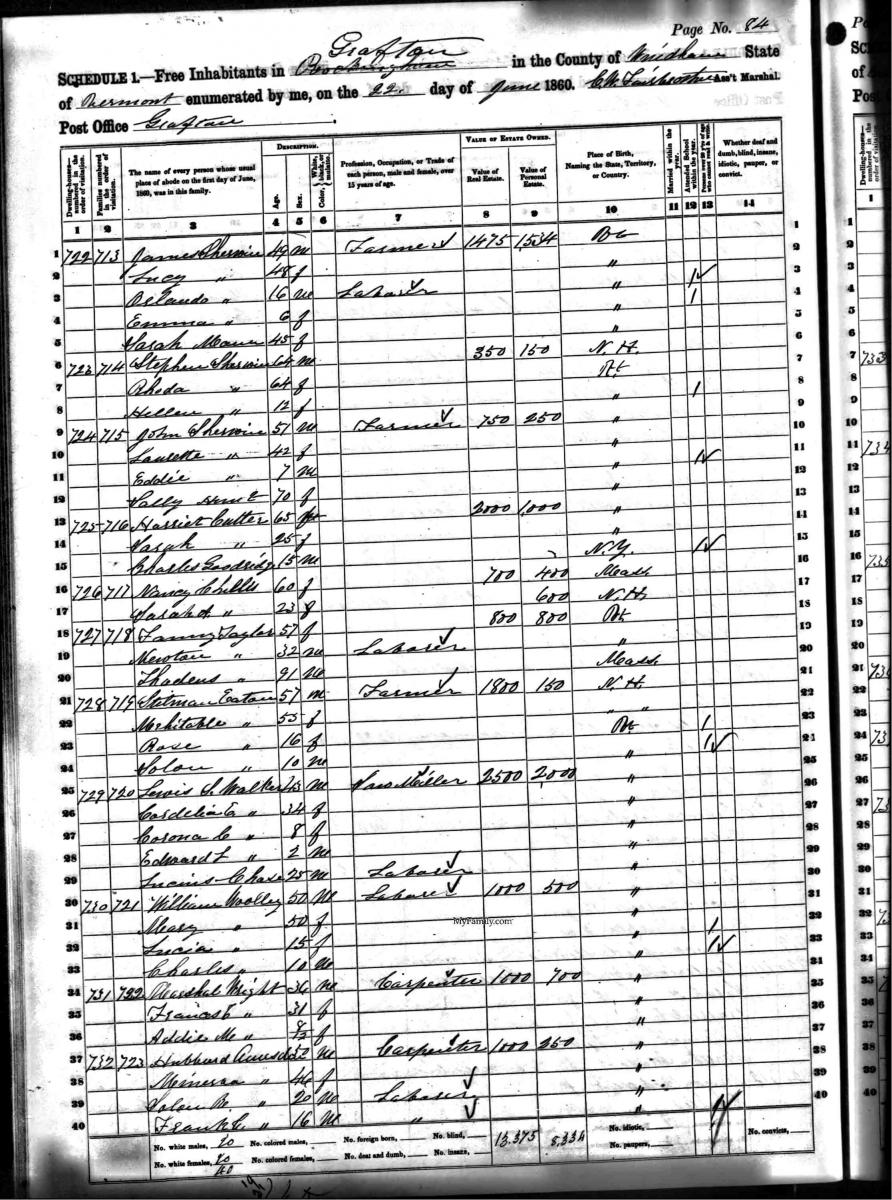 Page No. 84
Grafton
SCHEDULE 1.—Free Inhabitants in Rockingham in the County of Windham State
of Vermont enumerated by me, on the 22 day of June 1860. Ass't Marshal.
Post Office Grafton
Dwelling-houses—numbered in the order of visitation.
Families numbered in the order of visitation.
The name of every person whose usual place of abode on the first day of June, 1860, was in this family.
DESCRIPTION.
Age.
Sex.
Color, White, black, or mulatto.
Profession, Occupation, or Trade of each person, male and female, over 15 years of age.
VALUE OF ESTATE OWNED.
Value of Real Estate.
Value of Personal Estate.
Place of Birth, Naming the State, Territory, or Country.
Married within the year.
Attended School within the year.
Whether deaf and dumb, blind, insane, idiotic, pauper, or convict.
1 2 3 4 5 6 7 8 9 10 11 12 13 14
1 722 713 James Sherwin 49 m Farmer 1475 1,534 Vt 1
2 Lucy " 48 f " 2
3 Orlando " 16 m Laborer " 1 3
4 Emma " 6 f " 1 4
5 Sarah 45 f " 5
6 723 714 Stephen Sherwin 64 m 350 150 N. H. 6
7 Rhoda " 64 f Vt 7
8 Hellen " 12 f " 1 8
9 724 715 John Sherwin 51 m Farmer 750 250 " 9
10 Laurette " 42 f " 10
11 Eddie " 7 m " 1 11
12 Sally 70 f " 12
13 725 716 Harriet Cutter 65 2000 1,000 " 13
14 Sarah " 25 f " 14
15 Charles Goodridge 15 m N.Y. 1 15
16 726 717 Nancy Chellis 60 f 700 400 Mass. 16
17 Sarah A. " 23 f 600 N. H. 17
18 727 718 Fanny Taylor 57 f 800 800 Vt 18
19 Newton " 32 m Laborer " 19
20 Thadeus " 91 m Mass. 20
21 728 719 Stilman Eaton 57 m Farmer 1800 150 N. H. 21
22 Mehitable " 55 f " " 22
23 Rose " 16 f Vt 1 23
24 Solon " 10 m " 1 24
25 729 720 Lewis S. Walker 43 m Saw Miller 2500 2,000 " 25
26 Cordelia E " 34 f " 26
27 Corona C " 8 f " 27
28 Edward L " 2 m " 28
29 Lucius Chase 25 m Laborer " 29
30 730 721 William Woolley 50 m Laborer 1000 500 "
31 Mary " 50 f " 31
32 Lucia " 15 f " 1 32
33 Charles " 10 m " 1 33
34 731 722 Marshal Wright 36 m Carpenter 1000 700 " 34
35 Frances " 31 f " 35
36 Addie M " f " 36
37 732 723 Hubbard 52 m Carpenter 1000 250 "
38 Minerva " 46 f " 38
39 Solon B. " 20 m Laborer " 39
40 Frank C. " 16 m " " 40
No. white males, 20 No. colored males, No. foreign born, No. blind, 13,375 8,334 No. idiotic, No. convicts,
No. white females, 20 No. colored females, No. deaf and dumb, No. insane, No. paupers,
40
MyFamily.com